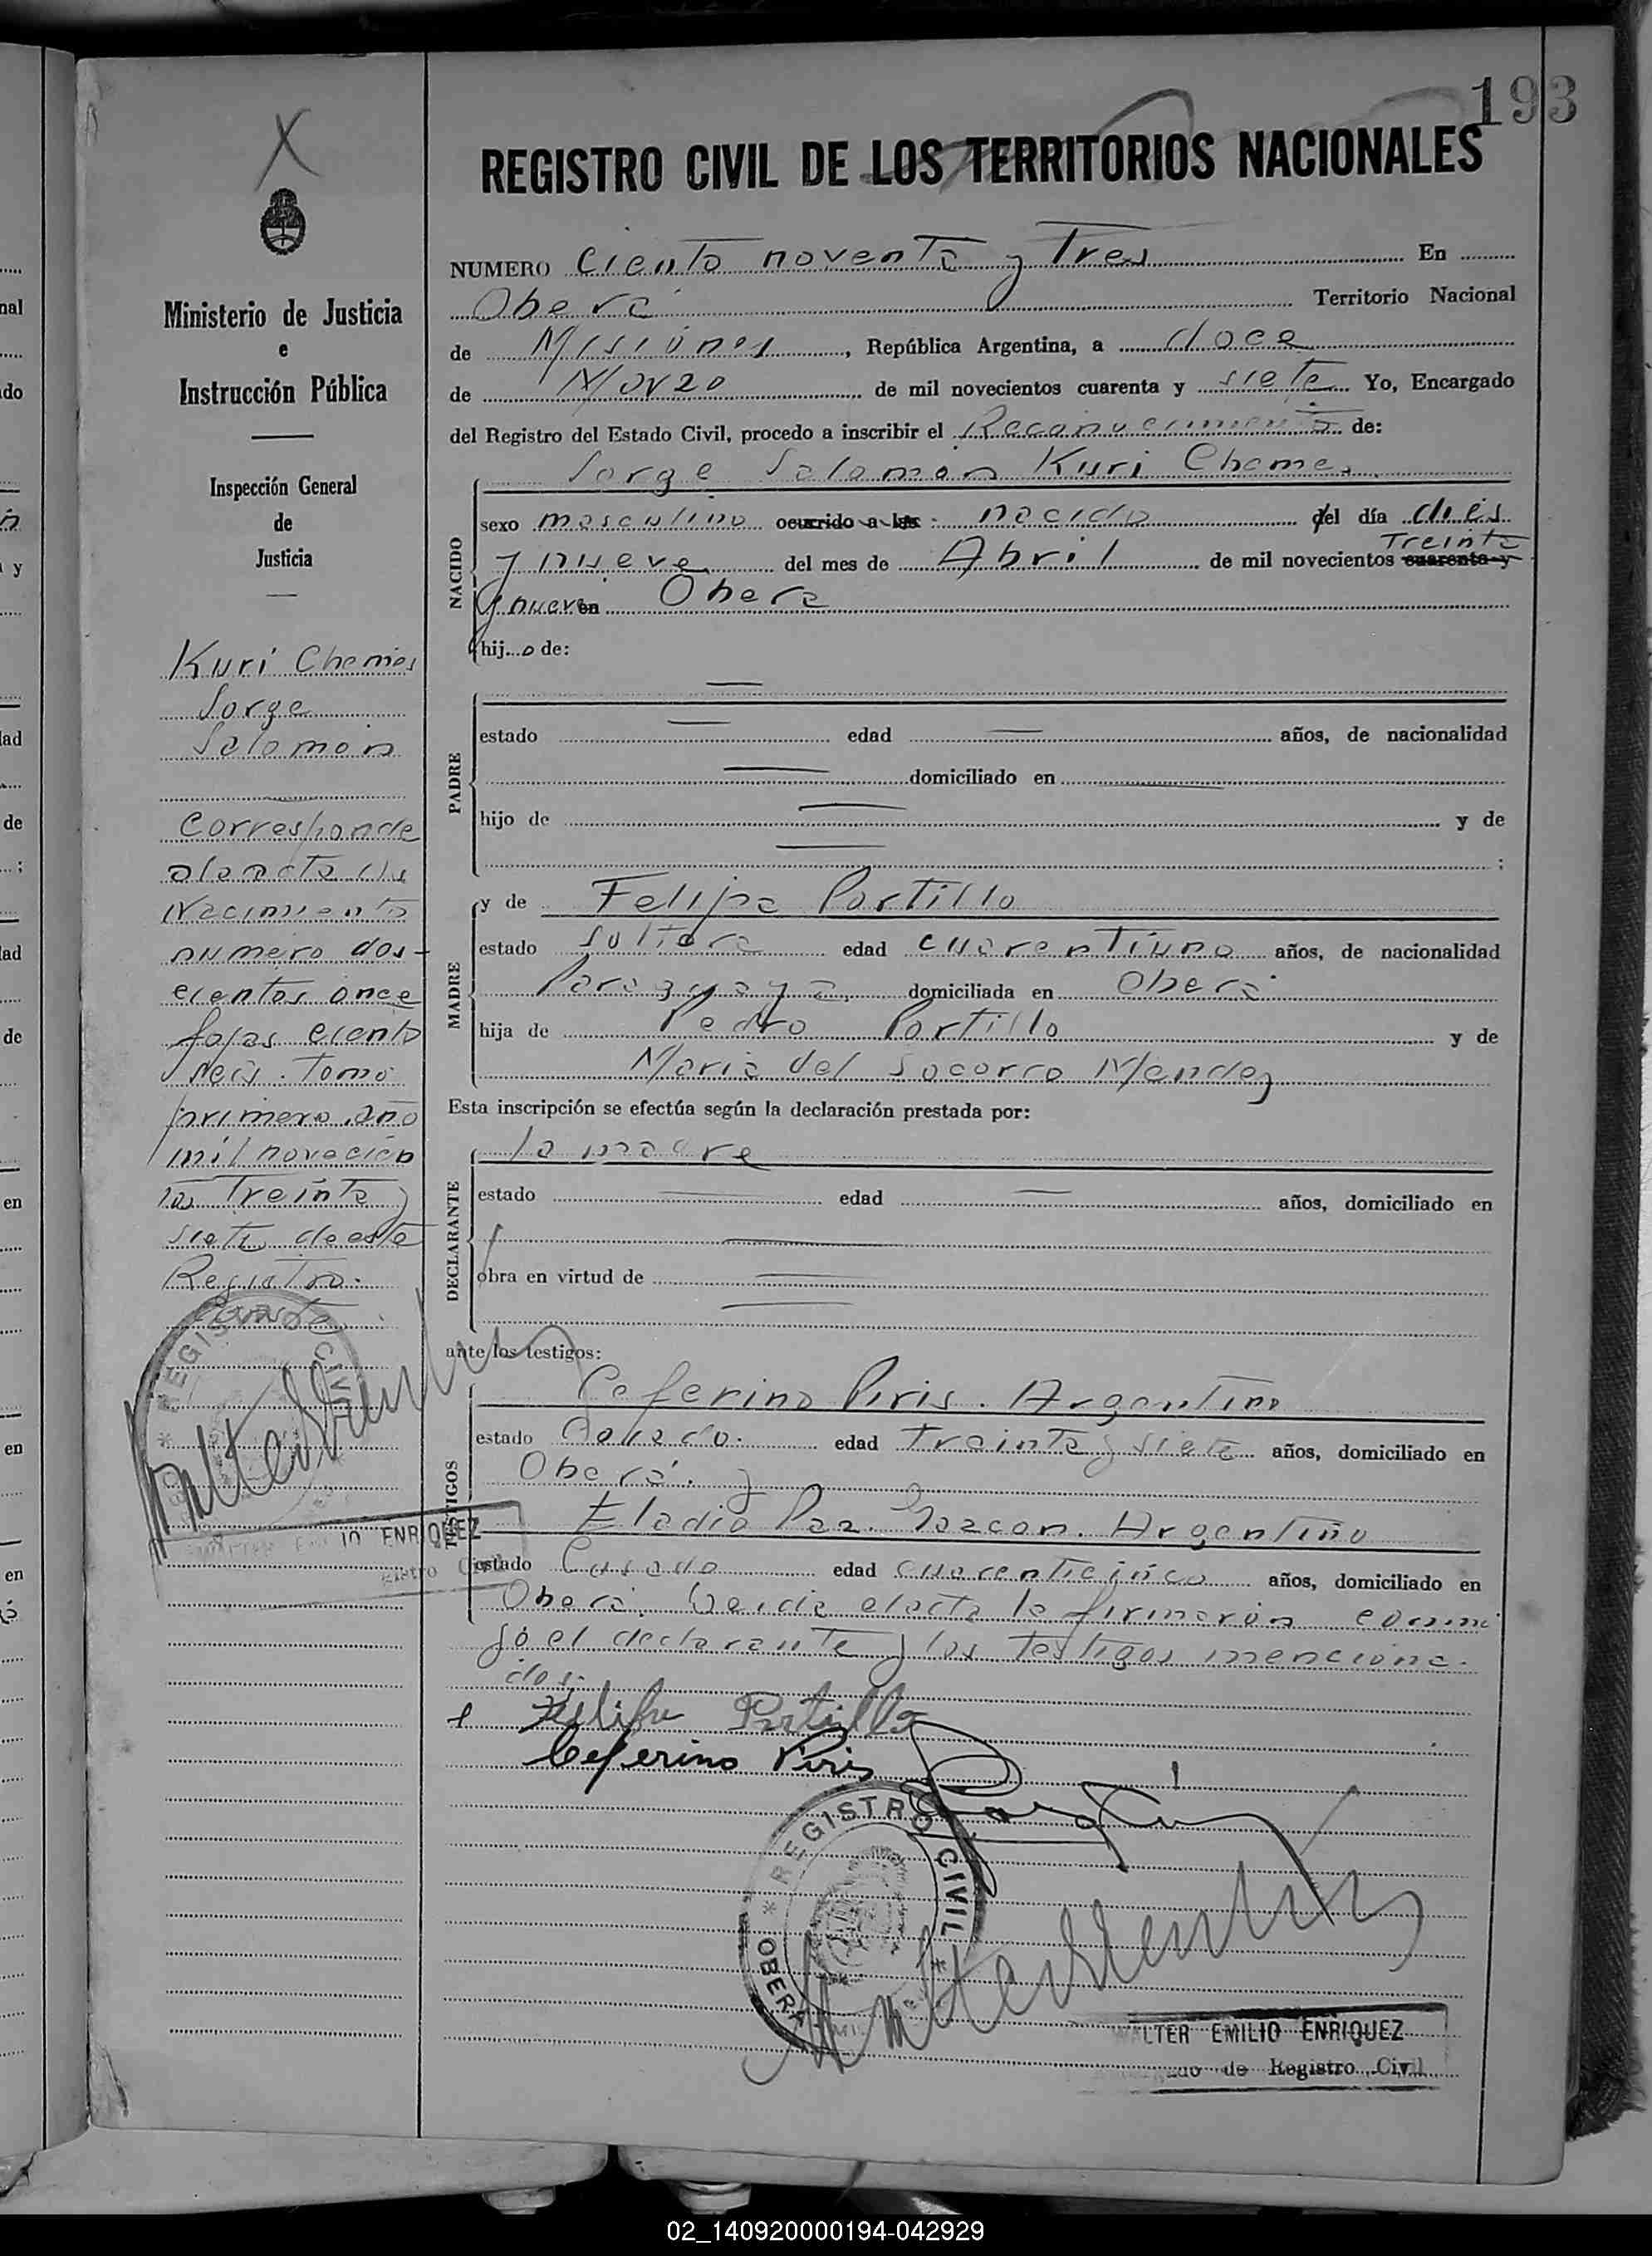 193
REGISTRO CIVIL DE LOS TERRITORIOS NACIONALES
NUMERO Ciento noventa y Tres En
Oberá Territorio Nacional
de Misiones, República Argentina, a doce
de Marzo de mil novecientos cuarenta y siete Yo, Encargado
del Registro del Estado Civil, procedo a inscribir el Reconocimiento de:
Jorge Salomón Kuri Chemes
NACIDO
sexo masculino ocurrido a las nacido del día dies
Treinta
y nueve del mes de Abril de mil novecientos cuarenta y
y nueve en Oberá
hijo de:
PADRE
estado edad años, de nacionalidad
domiciliado en
hijo de y de
;
MADRE
y de Felipa Portillo
estado soltera edad cuarentiuno años, de nacionalidad
Paraguaya domiciliada en Oberá
hija de Pedro Portillo y de
Maria del Socorro Mendez
Esta inscripción se efectúa según la declaración prestada por:
DECLARANTE
la madre
estado edad años, domiciliado en
obra en virtud de
ante los testigos:
TESTIGOS
Ceferino Piris. Argentino
estado Casado. edad treinta y siete años, domiciliado en
Oberá. y
Eladio Paz. Argentino
estado Casado edad cuarenticinco años, domiciliado en
Oberá. Leida el acta la firmaron conmi
go el declarante y los testigos menciona-
dos.
Felipa Portillo
Ceferino Piris
REGISTRO CIVIL
OBERÁ
WALTER EMILIO ENRIQUEZ
de Registro Civil
Ministerio de Justicia
e
Instrucción Pública
Inspección General
de
Justicia
Kuri Chemes
Jorge
Salomón
Corresponde
al acta de
Nacimiento
numero dos-
cientos once
fojas ciento
seis. Tomo
primero año
mil novecien
tos Treinta y
siete de este
Registro.
Conste
REGISTRO CIVIL
IO ENRIQUEZ
02_140920000194-042929